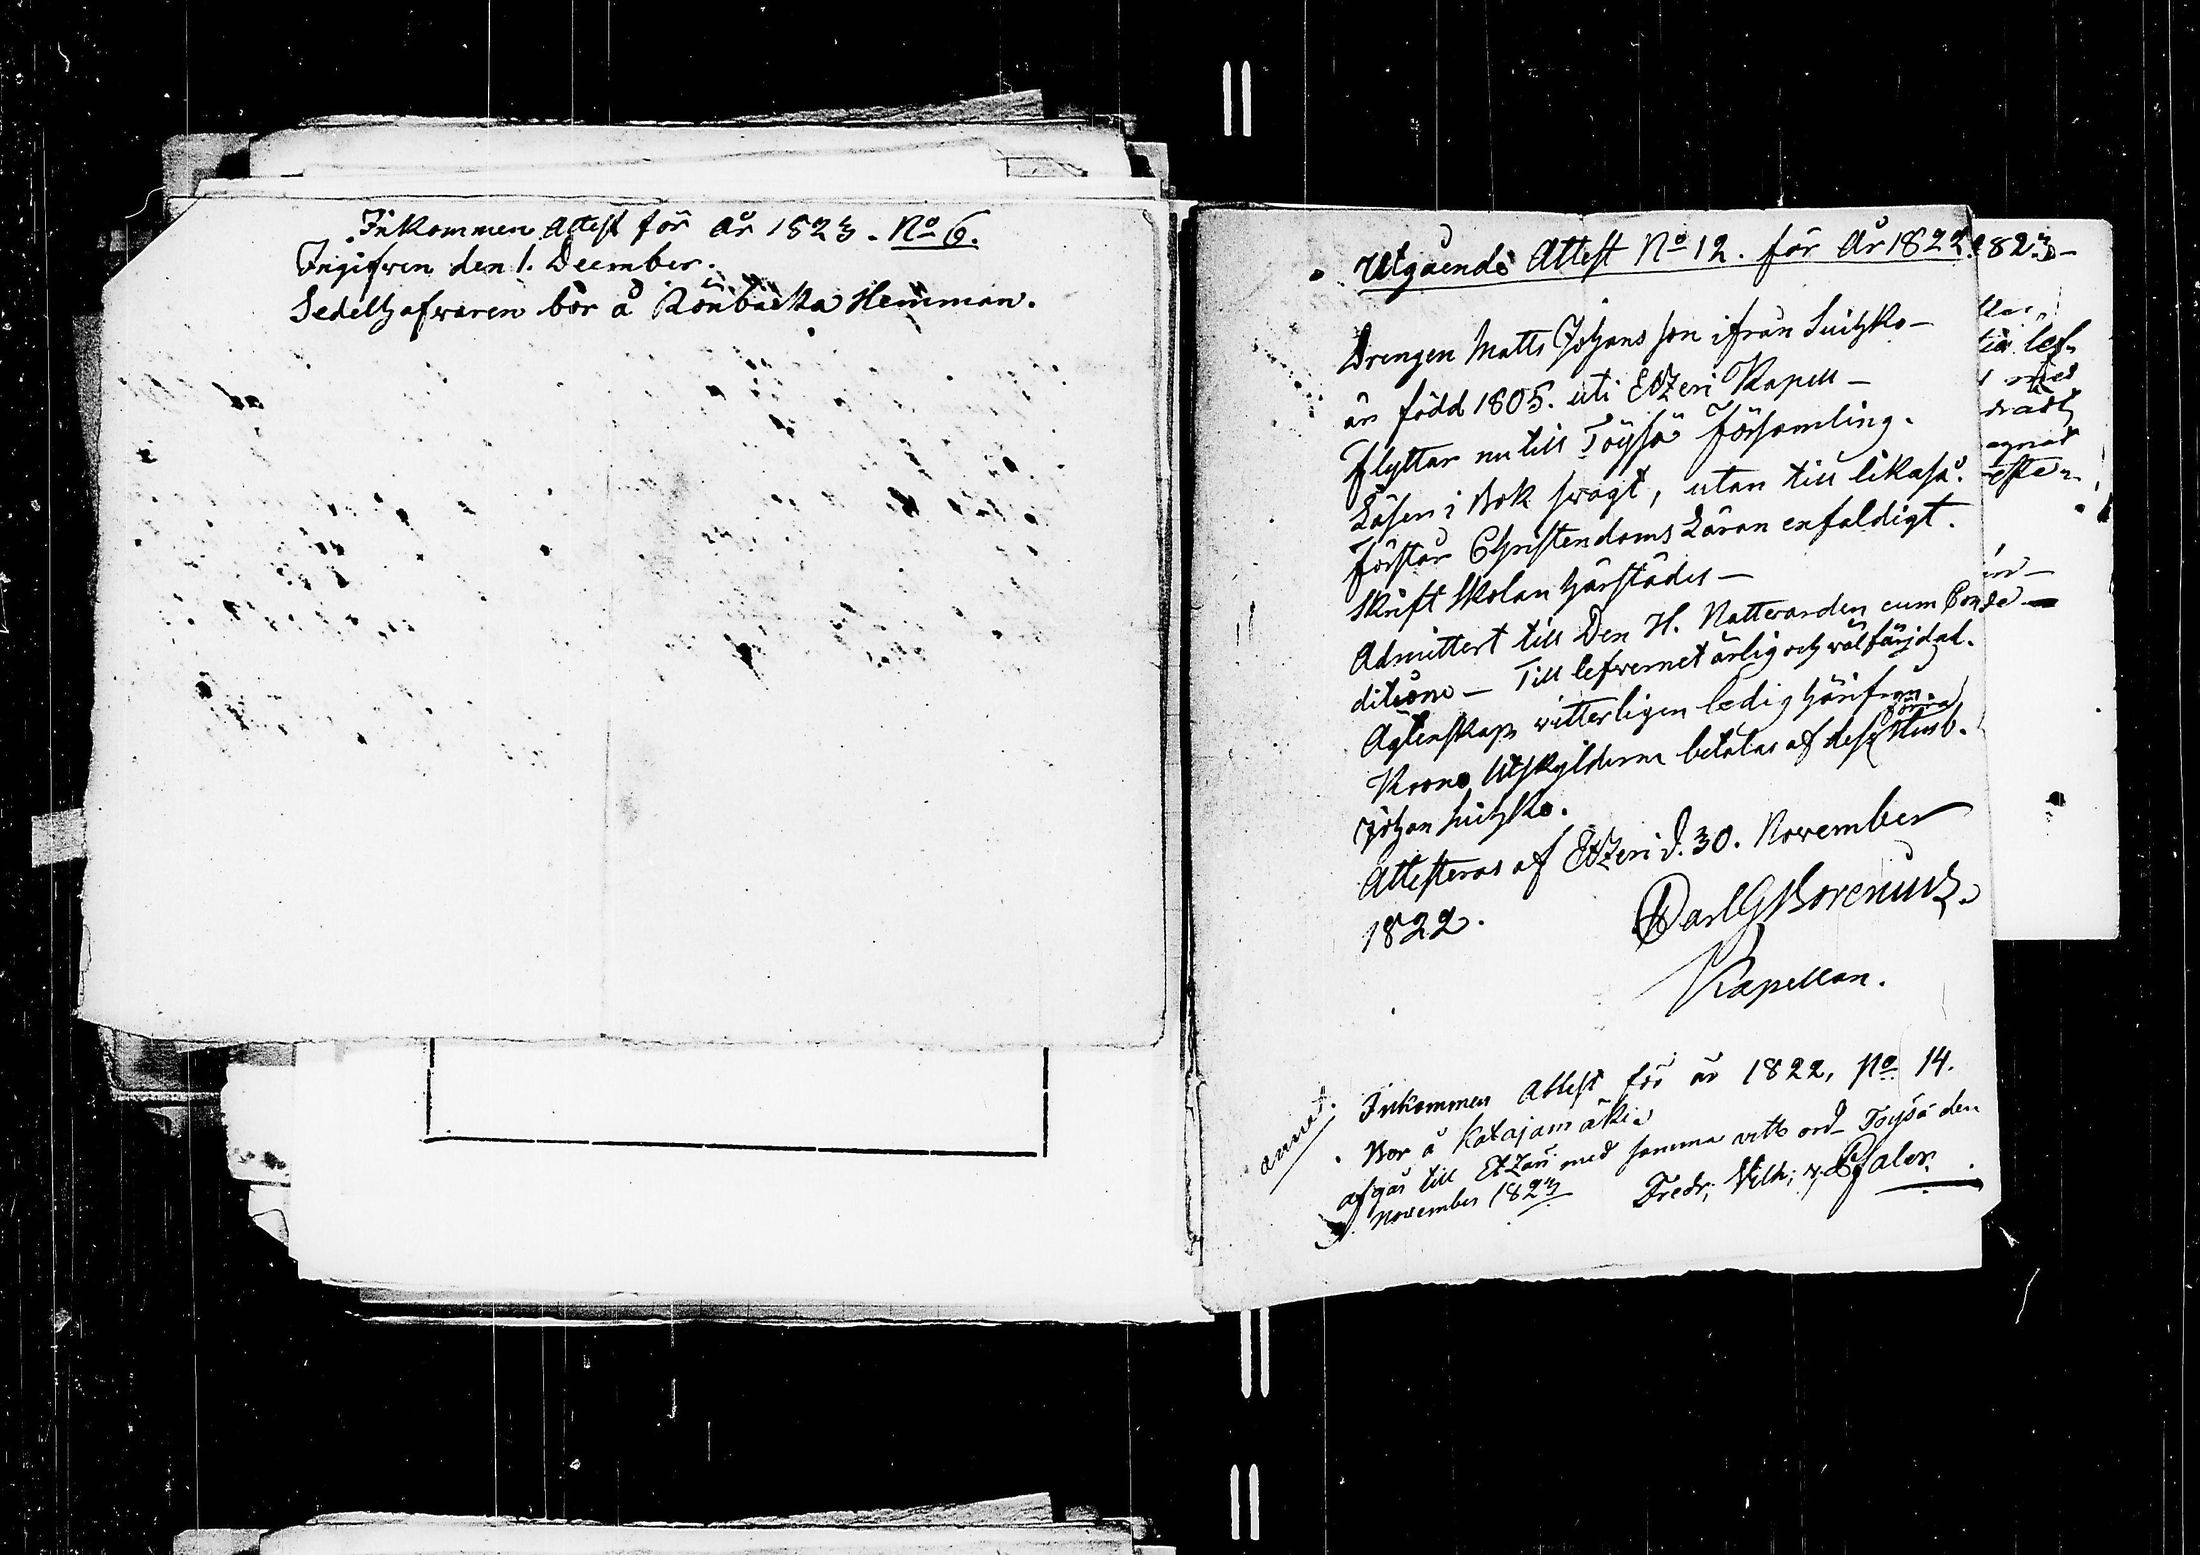 Inkommen Attest för År 1823. No 6.
Ingifven den 1. December.
Sedelhafvaren bor å Rönbacka Hemman.
Utgående Attest No 12. för År 1822.
1823-
Drengen Matts Johansson ifrån
är född 1805. uti Etzeri Kapell-
flyttar nu till Töysä Församling.
Läser i Bok svagt, utan till likaså.
Förstår Christendoms Läran enfaldigt.
Skrift Skolan härstädes-
Admittert till Den H. Nattvarden cum Con
ditione - Till lefvernet ärlig och välfärjdad.
Ägtenskaps vitterligen ledig härifrån.
Krono Utskylderne betalas af dess förra Husb.
Johan
Attesteras af Etzeri d. 30. November
1822.
Carl G Borenius.
Kapellan.
Inkommen Attest för år 1822, No 14.
Bor å Katajamäki
afgår till Etzäri med samma vitts ord Töysä den
November 1823
Fredr; Vilh; v. Pfaler